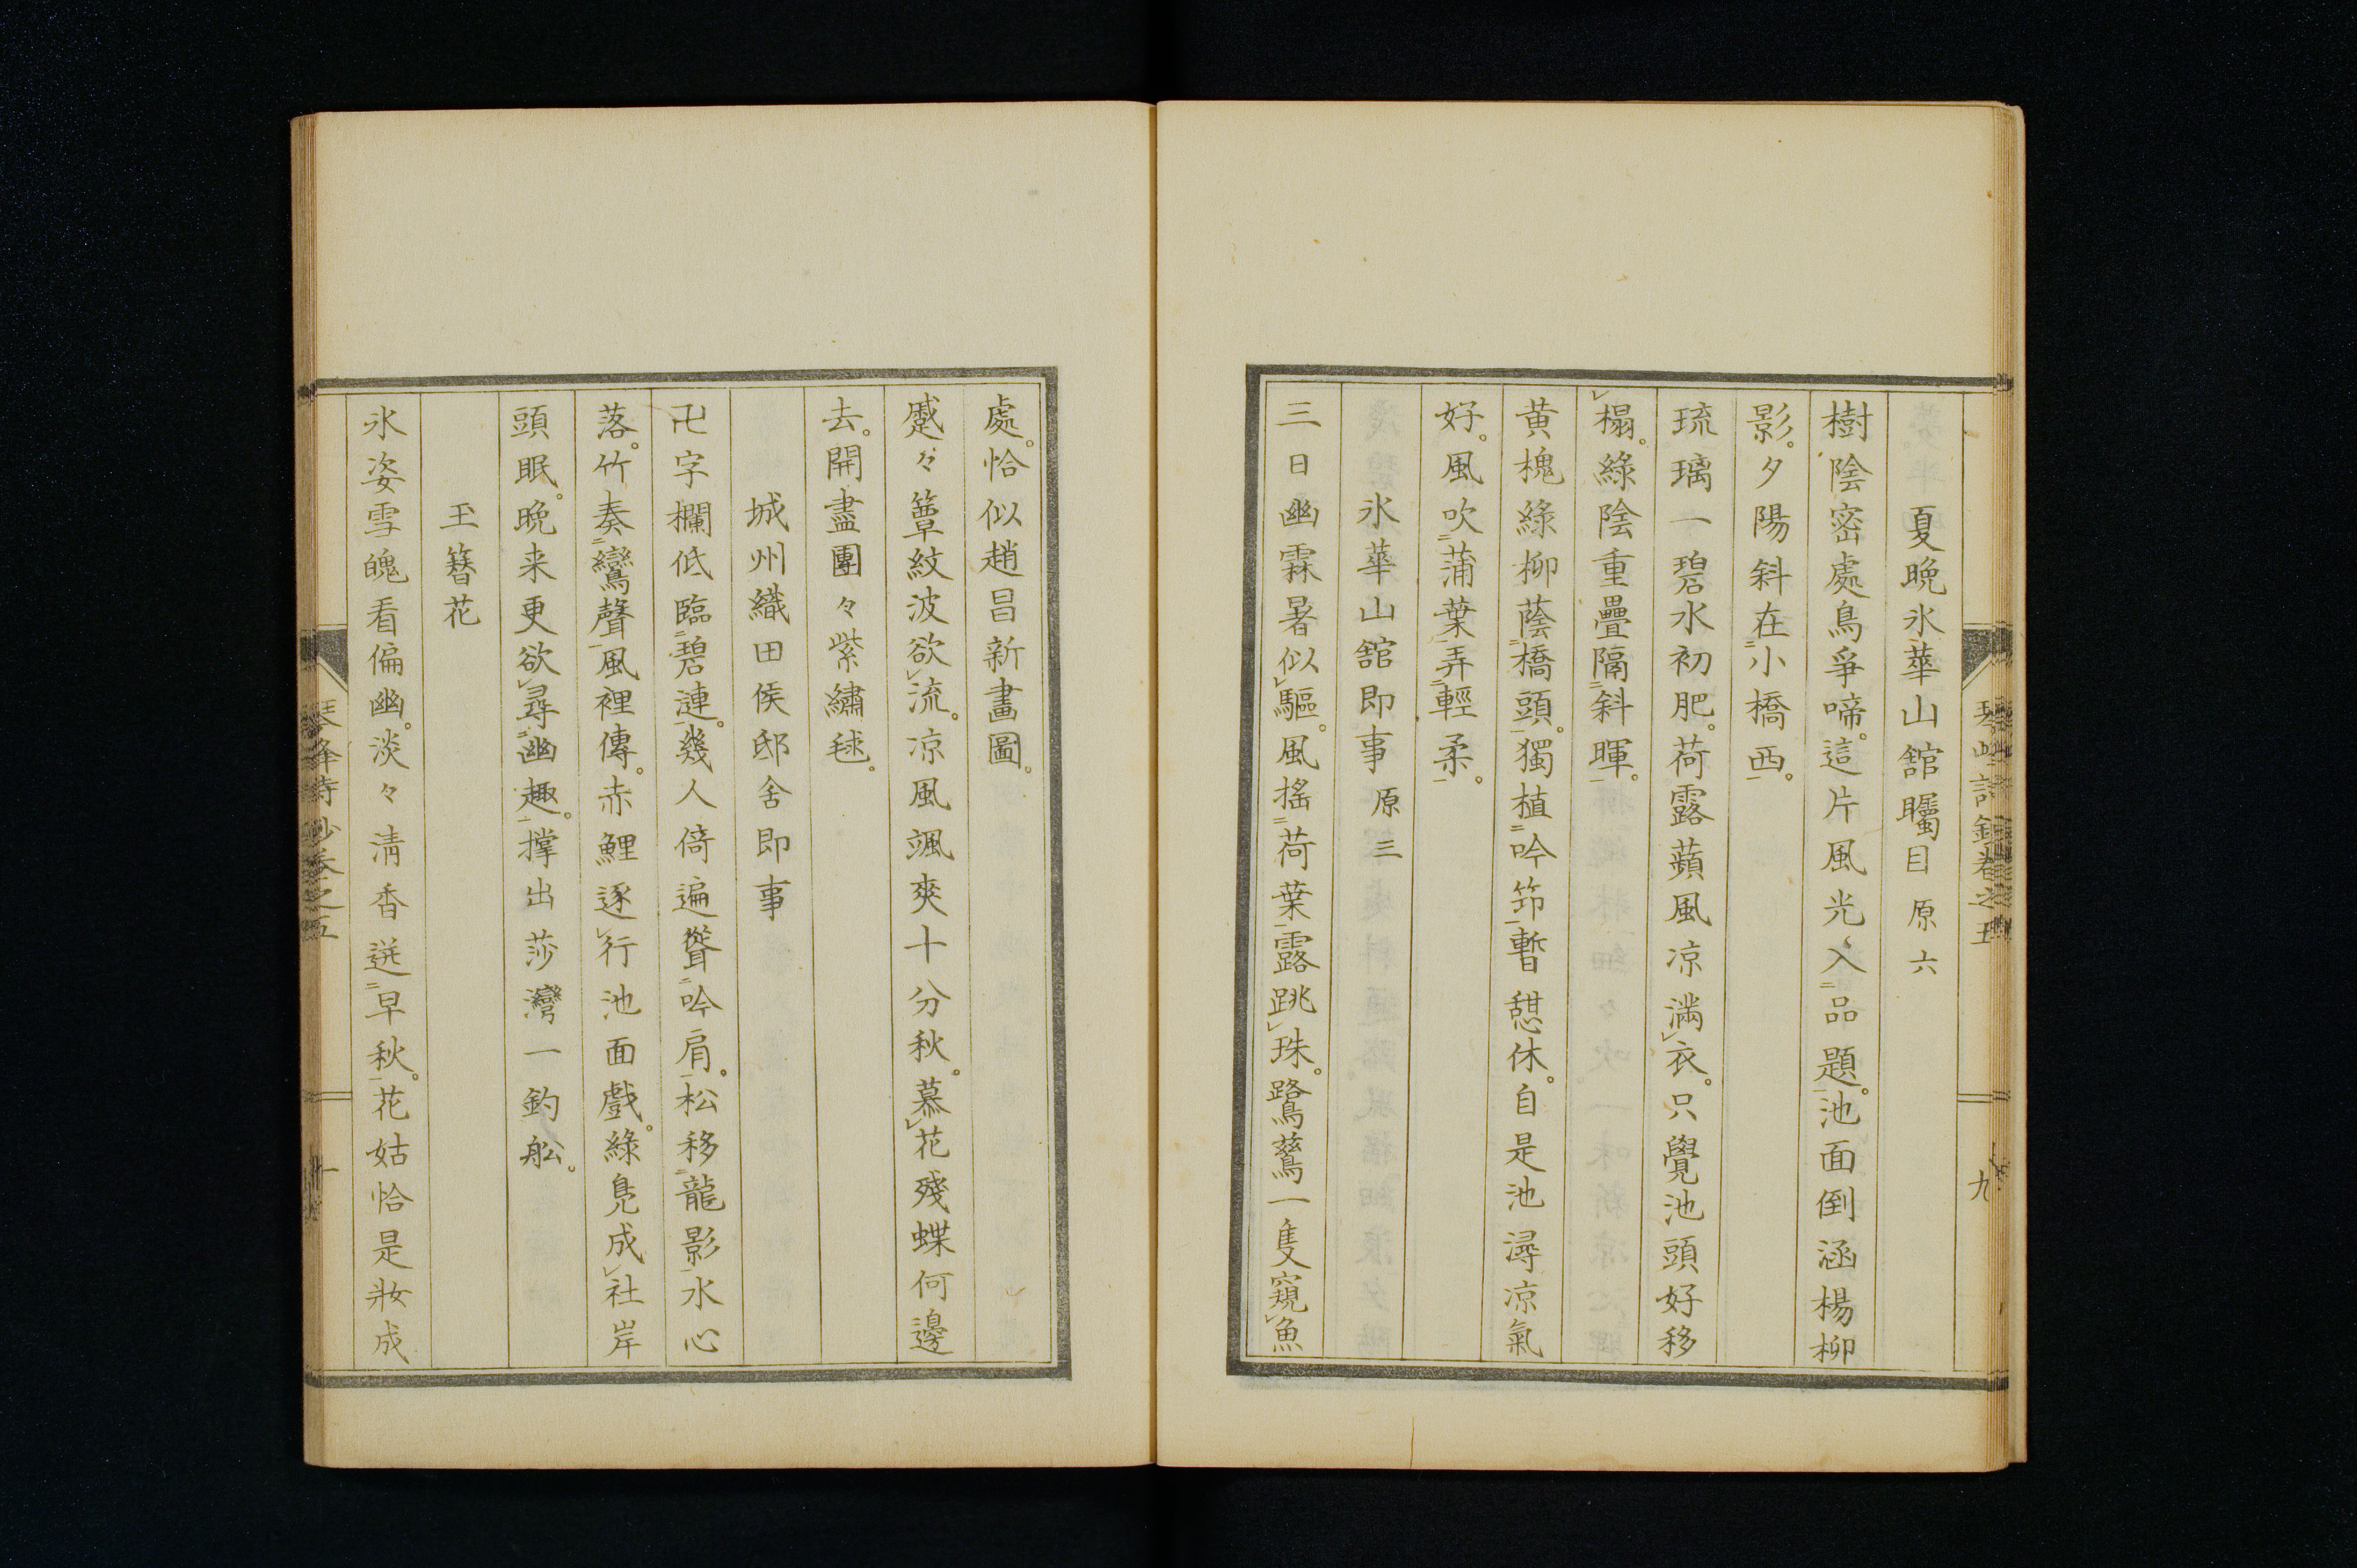 夏晩氷華山舘矚目 原六
樹陰密處鳥爭啼。這片風光入品題。池面倒涵楊柳
影。夕陽斜在小橋西。
琉璃一碧水初肥。荷露蘋風凉滿衣。只覺池頭好移
榻。綠陰重疊隔斜暉。
黄槐綠柳蔭橋頭。獨植吟筇暫憇休。自是池潯凉氣
好。風吹蒲葉弄輕柔。
氷華山舘即事 原三
三日幽霖暑似驅。風搖荷葉露跳珠。鷺鶿一隻窺魚
九
處。恰似趙昌新畫圖。
蹙々簟紋波欲流。凉風颯爽十分秋。慕花殘蝶何邊
去。開盡團々紫繡毬。
城州織田侯邸舍即事
卍字欄低臨碧漣。幾人倚遍聳吟肩。松移龍影水心
落。竹奏鸞聲風裡傳。赤鯉逐行池面戲。綠鳧成社岸
頭眠。晩来更欲尋幽趣。撑出莎灣一釣舩。
玉簪花
氷姿雪魄看偏幽。淡々淸香逬早秋。花姑恰是妝成